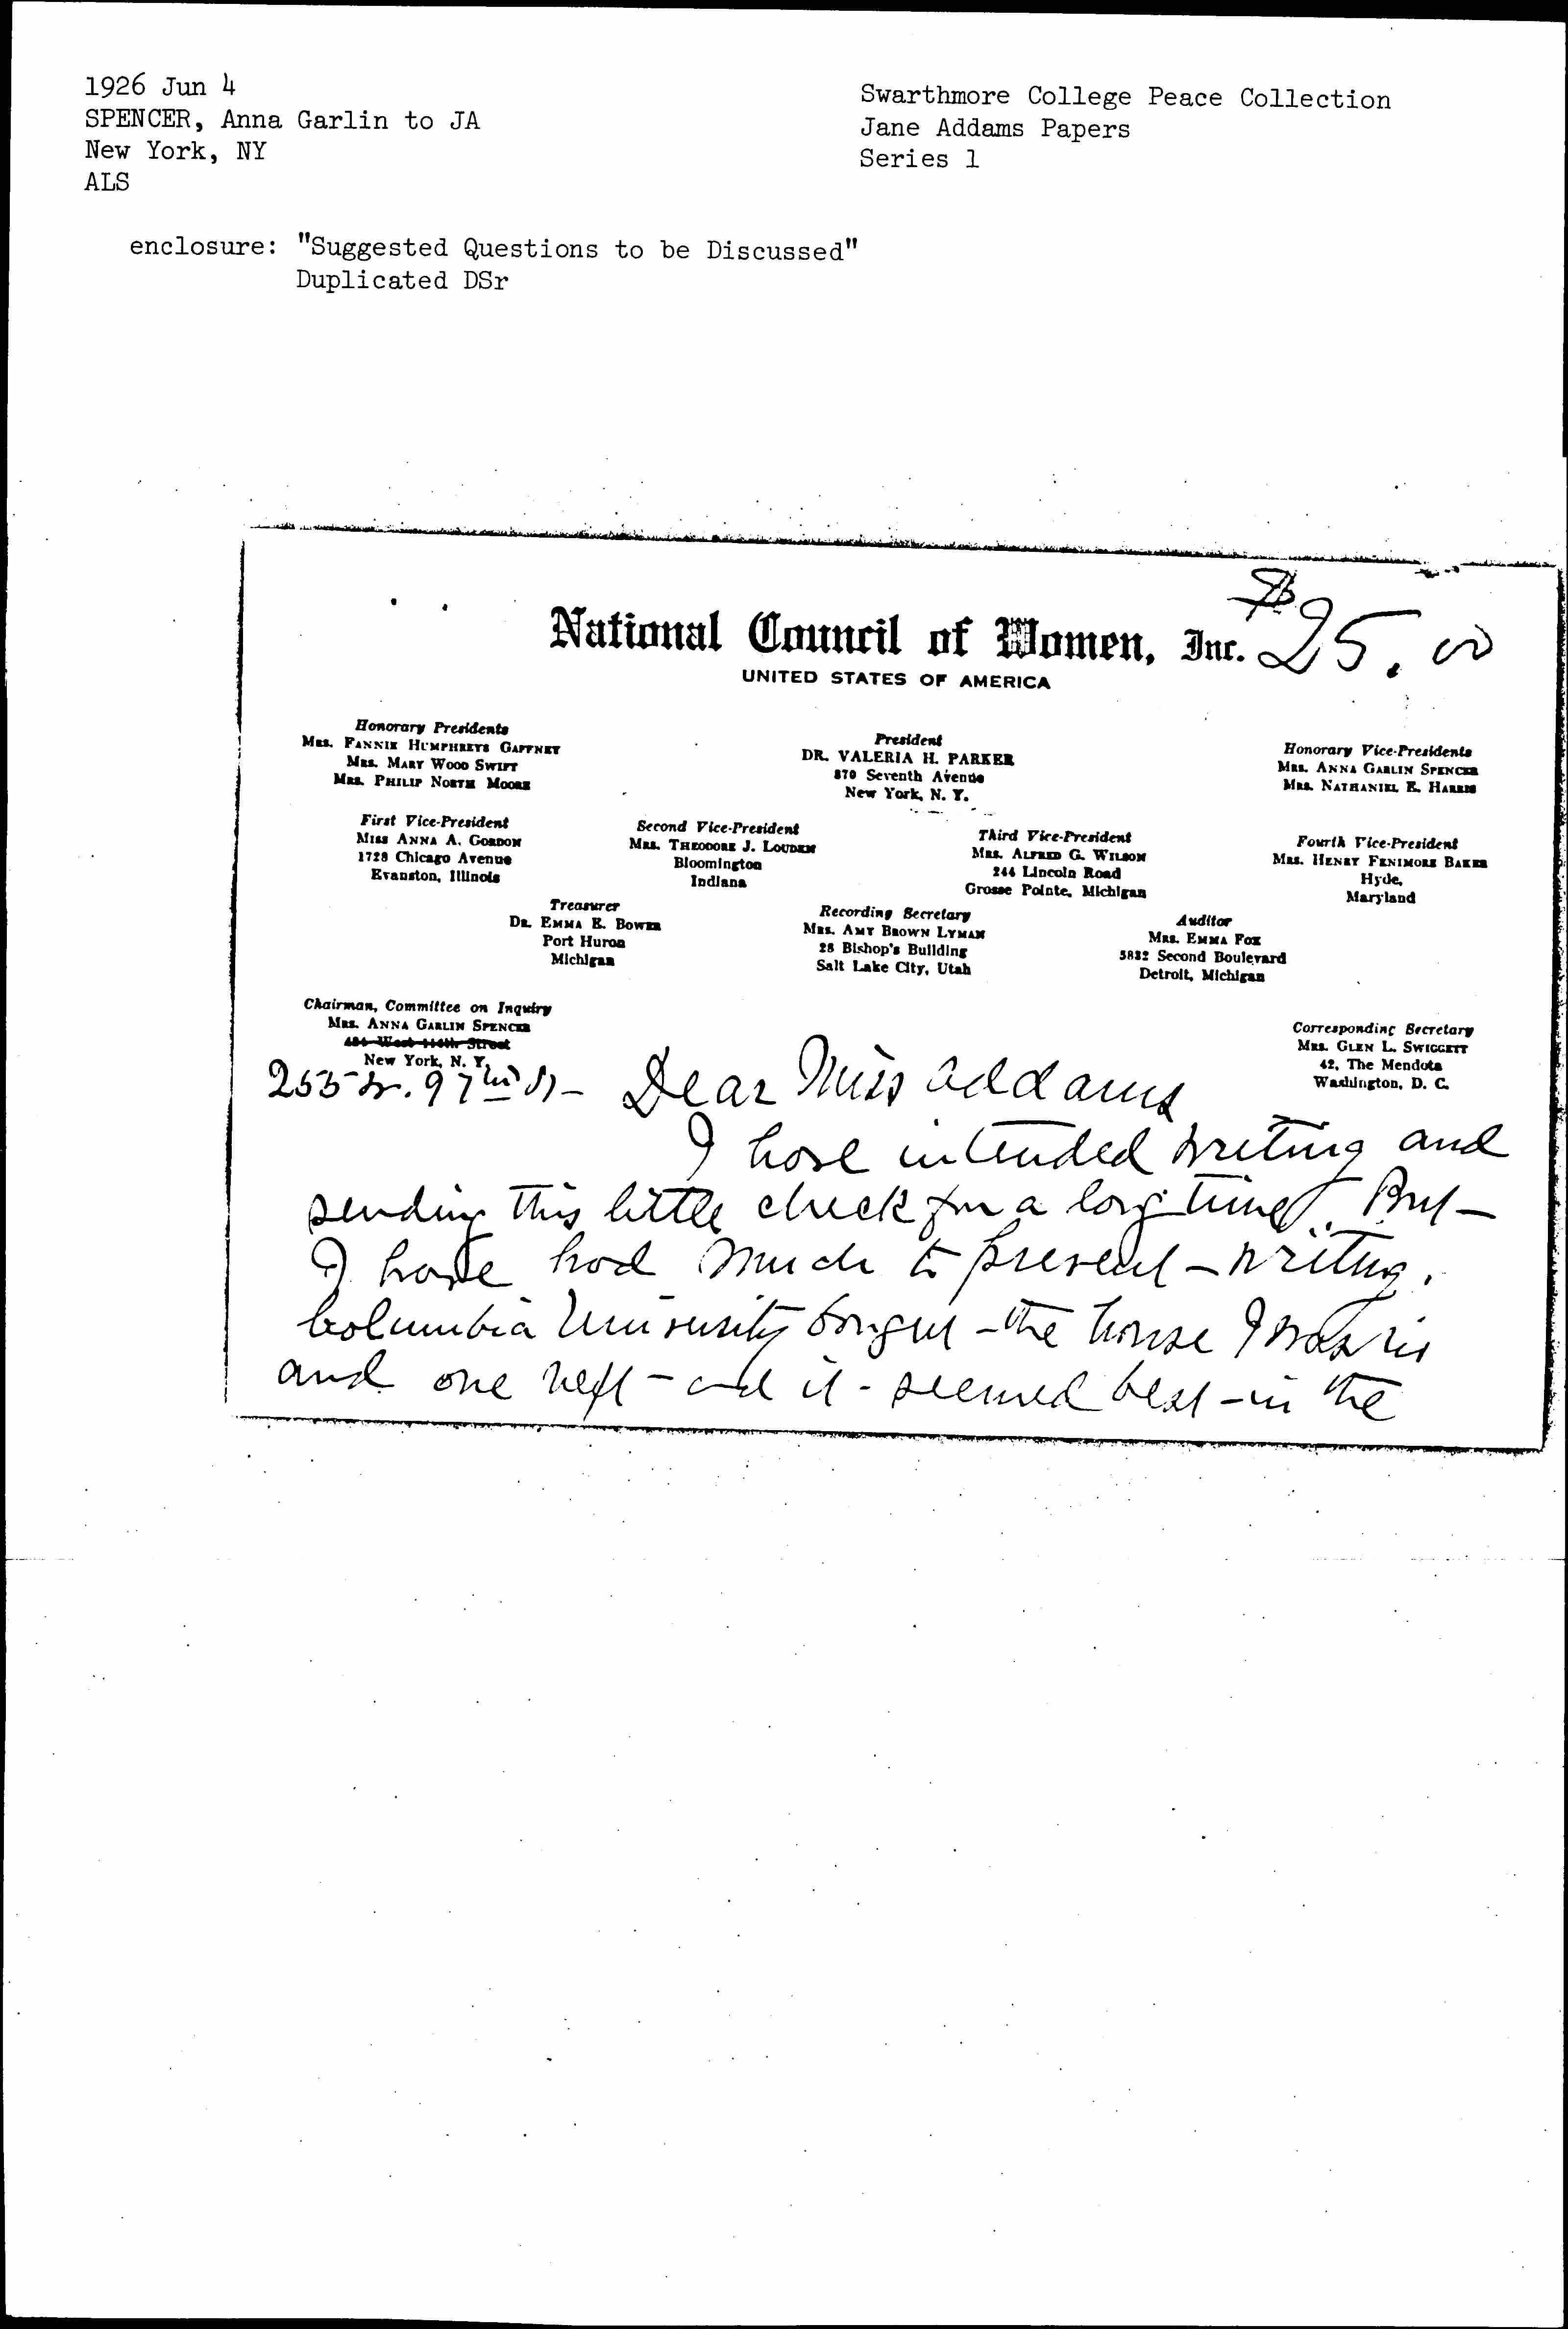 1926 Jun 4
SPENCER, Anna Garlin to JA
New York, NY
ALS
Swarthmore College Peace Collection
Jane Addams Papers
Series 1
enclosure: "Suggested Questions to be Discussed"
Duplicated DSr
$25.00
National Council of Women, Inc.
UNITED STATES OF AMERICA
Honorary Presidents
MRS. FANNIE HUMPHREYS GAFFNEY
MRS. MARY WOOD SWIFT
MRS. PHILIP NORTH MOORE
President
DR. VALERIA H. PARKER
370 Seventh Avenue
New York, N. Y.
Honorary Vice-Presidents
MRS. ANNA GARLIN SPENCER
MRS. NATHANIEL E. HARRIS
First Vice-President
MISS ANNA A. GORDON
1728 Chicago Avenue
Evanston, Illinois
Second Vice-President
MRS. THEODORE J. LOUDEN
Bloomington
Indiana
Third Vice-President
MRS. ALFRED G. WILSON
244 Lincoln Road
Grosse Pointe, Michigan
Fourth Vice-President
MRS. HENRY FENIMORE BAKER
Hyde,
Maryland
Treasurer
DR. EMMA E. BOWER
Port Huron
Michigan
Recording Secretary
MRS. AMY BROWN LYMAN
28 Bishop's Building
Salt Lake City, Utah
Auditor
MRS. EMMA FOX
5832 Second Boulevard
Detroit, Michigan
Chairman, Committee on Inquiry
MRS. ANNA GARLIN SPENCER
West Street
New York, N. Y.
Corresponding Secretary
MRS. GLEN L. SWIGGETT
42, The Mendota
Washington, D. C.
255 W. 97th St - Dear Miss Addams
I have intended writing and
sending this little check for a long time. But -
I have had much to prevent - writing.
Columbia University bought - the house I was in
and one next - and it - seemed best - in the